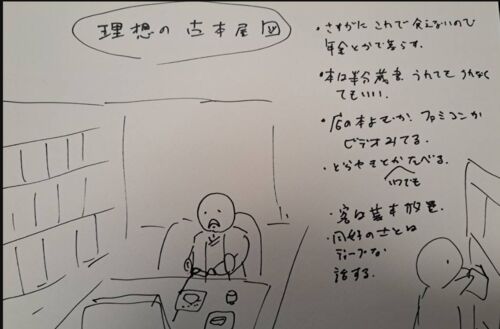 理想の古本屋図
・さすがにこれで食えないので
年金とかで暮らす。
・本は半分蔵書 うれてもうれなく
てもいい。
・店の本よむか、ファミコンか
ビデオみてる。
・どらやきとかたべる。
いつでも
・客は基本放置。
・同好の士とは
ディープな
話する。